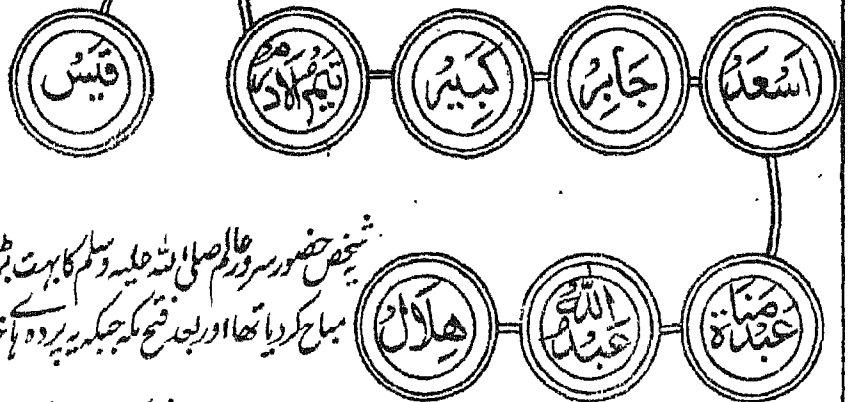 اَسْعَدُ جَابِرُ كَبِيْرُ تَيْمُ الْاَدْرَمُ قَيْسُ
عَبْدُمَنَاة عَبْدُاللّٰه هِلَالُ
یہ شخص حضور سرور عالم صلی اللہ علیہ وسلم کا بہت
مباح کردیا تھا اور بعد فتح مکہ جبکہ یہ پردہ ہائے